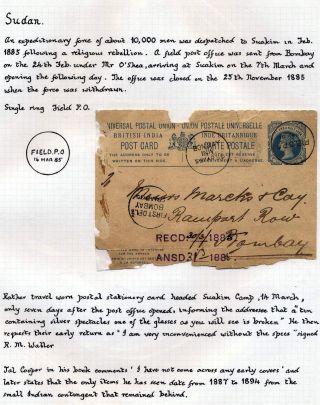 Sudan.
An expeditionary force of about 10,000 men was despatched to Suakim in Feb.
1885 following a religious rebellion. A field post office was sent from Bombay
on the 24th Feb. under Mr O'Shea, arriving at Suakim on the 7th March and
opening the following day. The office was closed on the 25th November 1885
when the force was withdrawn.
Single ring Field P.O.
FIELD.P.O
14 MAR.85
UNIVERSAL POSTAL UNION - UNION POSTALE UNIVERSELLE
BRITISH INDIA
POST CARD
CARTE POSTALE
THE ADDRESS ONLY TO BE
WRITTEN ON THIS SIDE
Messrs Marcks & Coy.
Rampart Row
Bombay
FIRST DELY
BOMBAY
RECD 30/3 1885
ANSD 1885
Rather travel worn postal stationery card headed Suakim Camp, 14 March,
only seven days after the post office opened, informing the addressee that a tin
containing silver spectacles one of the glasses as you will see is broken" He then
requests their early return as "I am very inconvenienced without the specs" signed
R. M. Waller
Jal Cooper in his book comments 'I have not come across any early covers' and
later states that the only items he has seen date from 1887 to 1894 from the
small Indian contingent that remained behind.